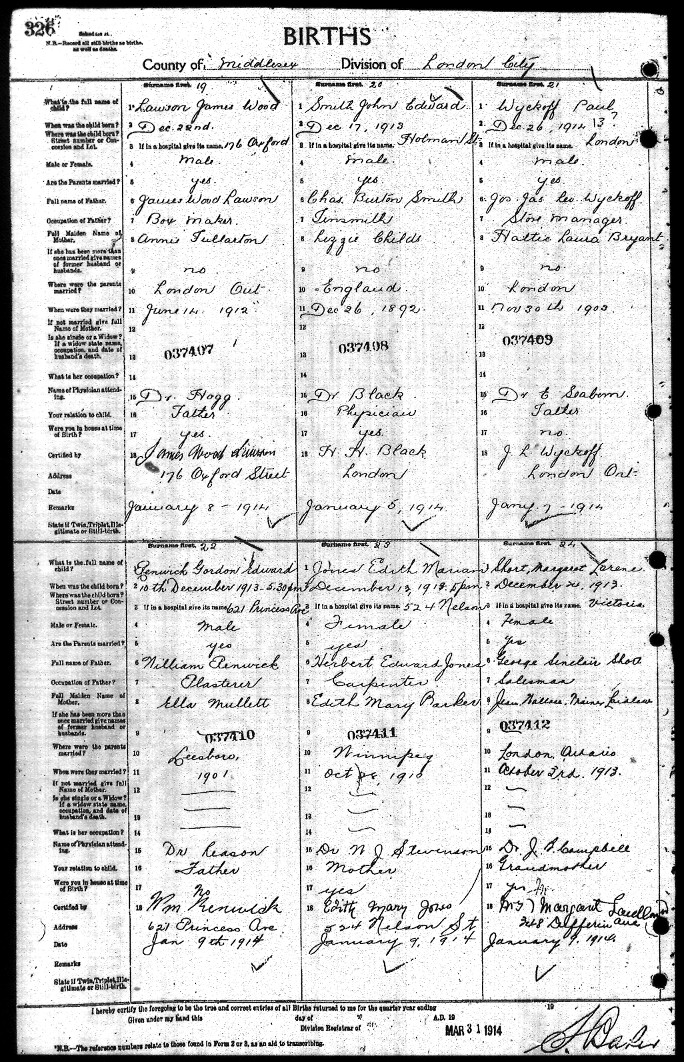 326
Schedule A.
N.B.—Record all still births as births, as well as deaths.
BIRTHS
County of Middlesex Division of London City
Surname first. 19 Surname first. 20 Surname first. 21
What is the full name of child? 1 Lawson James Wood 1 Smith John Edward 1 Wyckoff Paul
When was the child born? 2 Dec. 22nd. 2 Dec 17, 1913 2 Dec 26, 1914 3?
Where was the child born? Street number or Concession and Lot. 3 If in a hospital give its name. 176 Oxford 3 If in a hospital give its name. Holman St. 3 If in a hospital give its name. London
Male or Female. 4 Male. 4 Male. 4 Male.
Are the Parents married? 5 yes 5 yes 5 yes.
Full name of Father. 6 James Wood Lawson 6 Chas. Burton Smith 6 Jos. Jas Leo. Wyckoff
Occupation of Father? 7 Box maker. 7 Tinsmith 7 Store Manager.
Full Maiden Name of Mother. 8 Annie Fullarton 8 Lizzie Childs 8 Hattie Laura Bryant
If she has been more than once married give names of former husband or husbands. 9 no 9 no 9 no
Where were the parents married? 10 London Ont 10 England 10 London
When were they married? 11 June 14. 1912 11 Dec 26, 1892 11 Nov 30th 1903
If not married give full Name of Mother. 12 12 12
Is she single or a Widow? If a widow state name, occupation, and date of husband's death. 13 037407 13 037408 13 037409
What is her occupation? 14 14 14
Name of Physician attending. 15 Dr Hogg 15 Dr Black 15 Dr E Seaborn.
Your relation to child. 16 Father 16 Physician 16 Father
Were you in house at time of Birth? 17 yes. 17 yes 17 no.
Certified by 18 James Wood Lawson 18 H. H. Black 18 J. L. Wyckoff
Address 176 Oxford Street London London Ont-
Date
Remarks January 8 - 1914 January 5, 1914 Jany 7 - 1914
State if Twin, Triplet, Illegitimate or Still-birth.
Surname first. 22 Surname first. 23 Surname first. 24
What is the full name of child? 1 Renwick Gordon Edward 1 Jones Edith Marian 1 Short, Margaret Lorene
When was the child born? 2 10th December 1913 - 5.30 pm 2 December 13, 1913. 5 pm 2 December 1913.
Where was the child born? Street number or Concession and Lot. 3 If in a hospital give its name. 621 Princess Ave 3 If in a hospital give its name. 524 Nelson 3 If in a hospital give its name. Victoria
Male or Female. 4 Male 4 Female 4 Female
Are the Parents married? 5 yes 5 yes 5 yes
Full name of Father. 6 William Renwick 6 Herbert Edward Jones 6 George Sinclair Short
Occupation of Father? 7 Plasterer 7 Carpenter 7 Salesman
Full Maiden Name of Mother. 8 Ella Mullett 8 Edith Mary Barker 8 Jean Wallace
If she has been more than once married give names of former husband or husbands. 9 037410 9 037411 9 037412
Where were the parents married? 10 10 Winnipeg 10 London, Ontario
When were they married? 11 1901 11 Oct 1910 11 October 3rd. 1913.
If not married give full Name of Mother. 12 12 12
Is she single or a Widow? If a widow state name, occupation, and date of husband's death. 13 13 13
What is her occupation? 14 14 14
Name of Physician attending. 15 Dr Leason 15 Dr N J Stevenson 15 Dr. J. Campbell
Your relation to child. 16 Father 16 Mother 16 Grandmother
Were you in house at time of Birth? 17 No 17 yes 17 yes
Certified by 18 Wm Renwick 18 Edith Mary Jones 18 Margaret
Address 621 Princess Ave 524 Nelson St 348 Dufferin Ave
Date Jan 9th 1914 January 9, 1914 January 9, 1914.
Remarks
State if Twin, Triplet, Illegitimate or Still-birth.
I hereby certify the foregoing to be the true and correct entries of all Births returned to me for the quarter ending 19
Given under my hand this day of A.D. 19
Division Registrar of MAR 31 1914
*N.B.—The reference numbers relate to those found in Form 2 or 3, as an aid to transcribing.